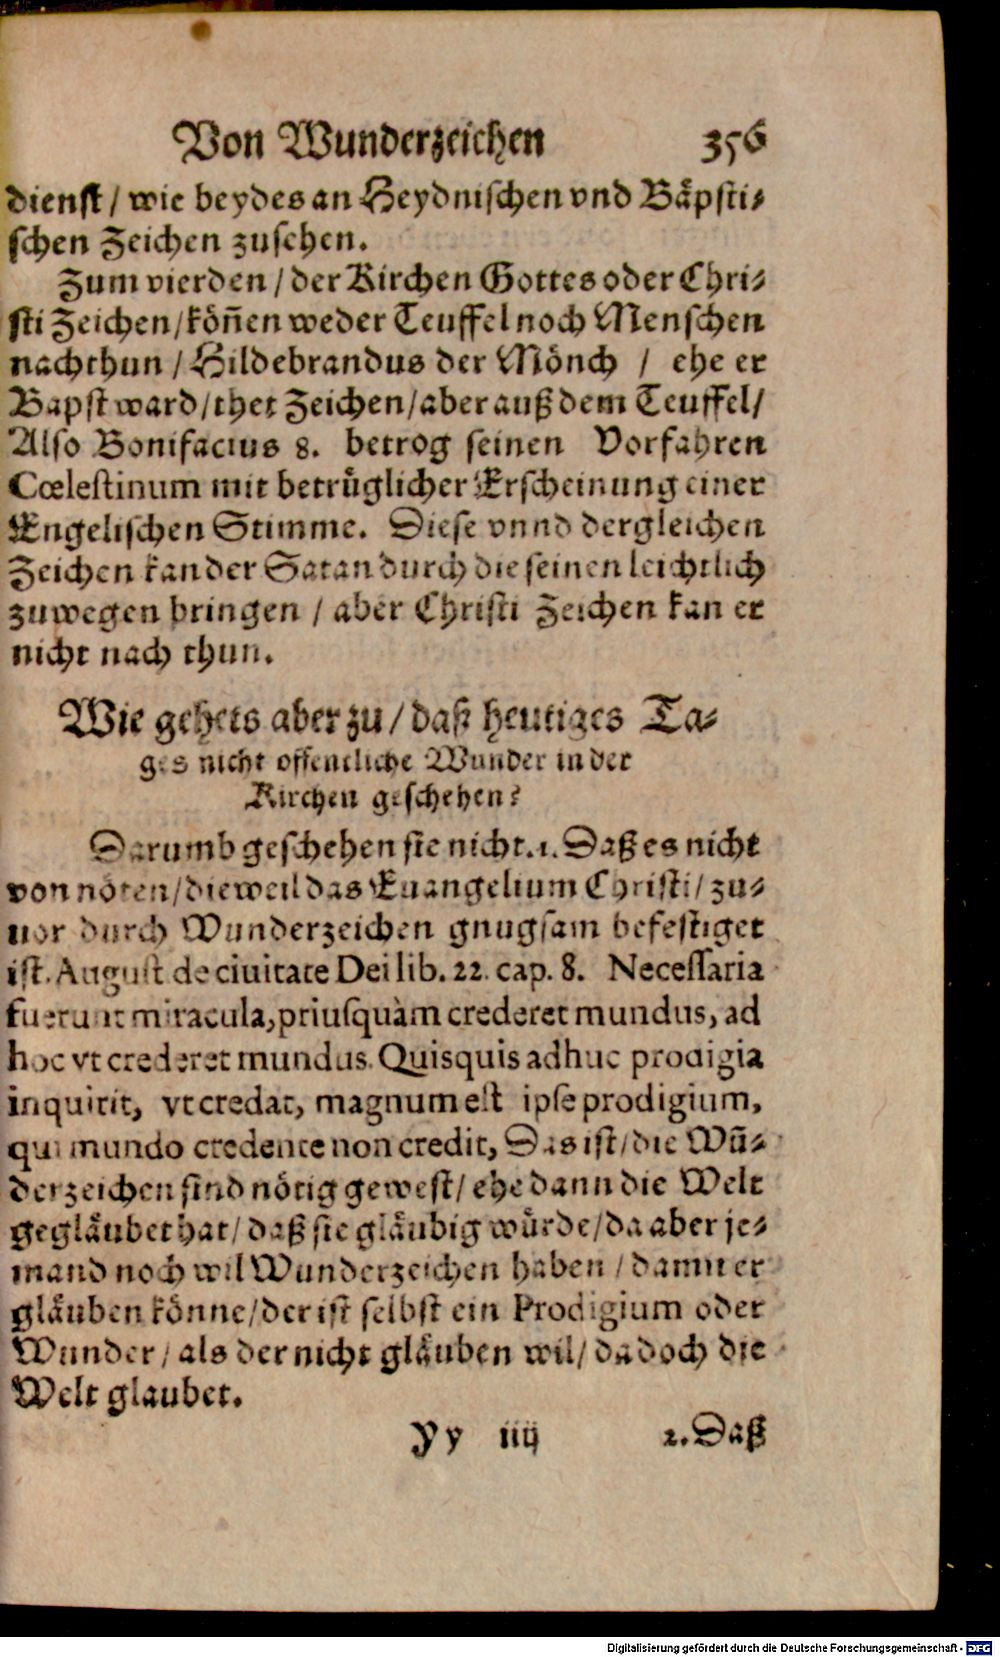 Von Wunderzeichen 356
dienst / wie beydes an Heydnischen vnd Bäpsti-
schen Zeichen zusehen.
Zum vierden / der Kirchen Gottes oder Chri-
sti Zeichen / kön̄en weder Teuffel noch Menschen
nachthun / Hildebrandus der Mönch / ehe er
Bapst ward / thet Zeichen / aber auß dem Teuffel /
Also Bonifacius 8. betrog seinen Vorfahren
Cœlestinum mit betrüglicher Erscheinung einer
Engelischen Stimme. Diese vnnd dergleichen
Zeichen kan der Satan durch die seinen leichtlich
zuwegen bringen / aber Christi Zeichen kan er
nicht nach thun.
Wie gehets aber zu / daß heutiges Ta-
ges nicht offentliche Wunder in der
Kirchen geschehen?
Darumb geschehen sie nicht. 1. Daß es nicht
von nöten / dieweil das Euangelium Christi / zu-
uor durch Wunderzeichen gnugsam befestiget
ist. August. de ciuitate Dei lib. 22. cap. 8. Necessaria
fuerunt miracula, priusquàm crederet mundus, ad
hoc vt crederet mundus. Quisquis adhuc prodigia
inquirit, vt credat, magnum est ipse prodigium,
qui mundo credente non credit, Das ist / die Wũ-
derzeichen sind nötig gewest / ehe dann die Welt
gegläubet hat / daß sie gläubig würde / da aber je-
mand noch wil Wunderzeichen haben / damit er
gläuben könne / der ist selbst ein Prodigium oder
Wunder / als der nicht gläuben wil / da doch die
Welt glaubet.
Yy iiij 2. Daß
Digitalisierung gefördert durch die Deutsche Forschungsgemeinschaft - DFG